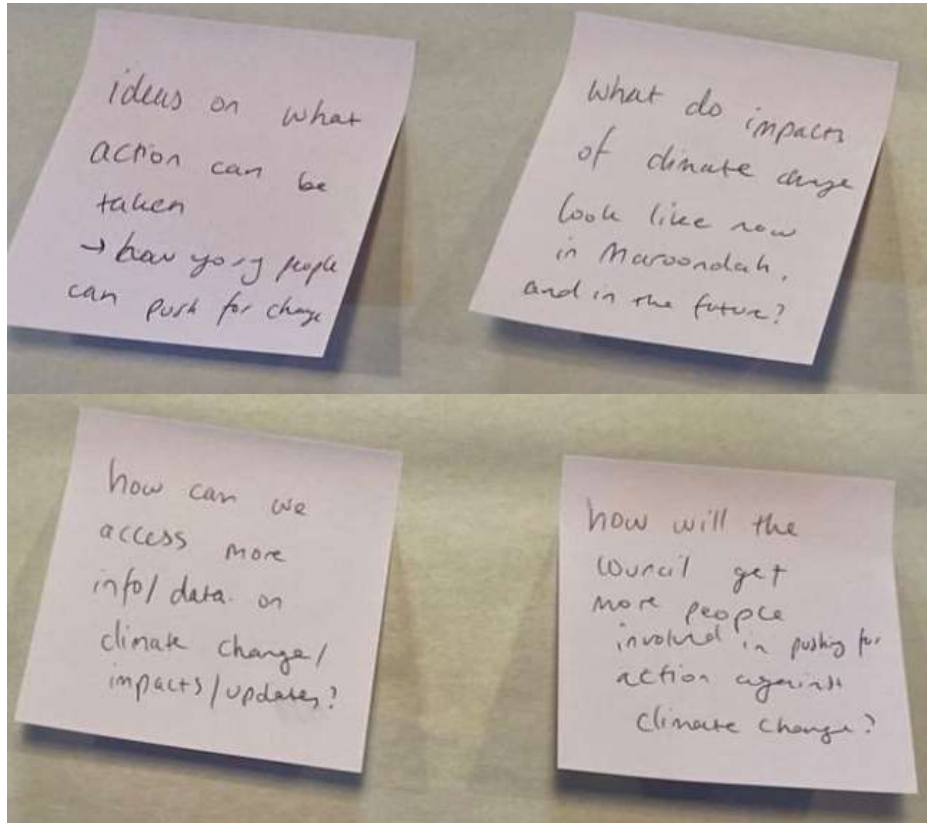 ideas on what
action can be
taken
→ how young people
can push for change
What do impacts
of climate change
look like now
in Maroondah,
and in the future?
how can we
access more
info/data on
climate change/
impacts/updates?
how will the
council get
more people
involved in pushing for
action against
climate change?